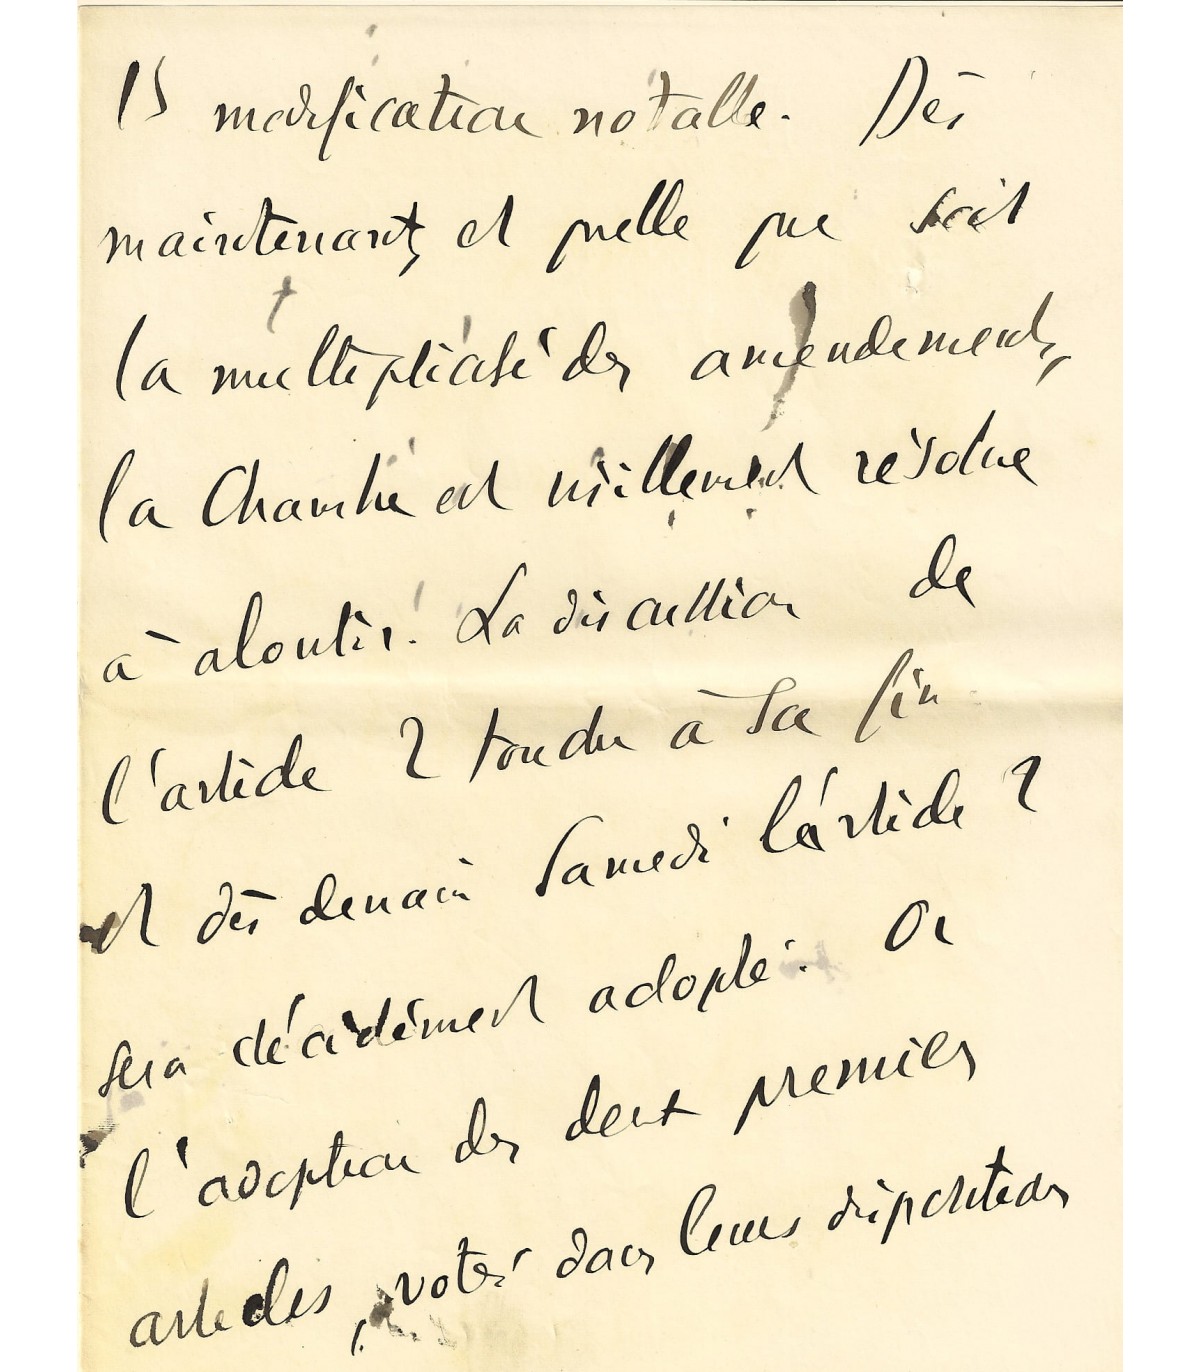 15 modification notable. Dès
maintenant, et quelle que soit
la multiplicité des amendements,
la Chambre est visiblement résolue
à aboutir. La discussion de
l'article 2 touche à sa fin
et dès demain Samedi l'article 2
sera décidément adopté. Or
l'adoption des deux premiers
articles, votés dans leurs dispositions